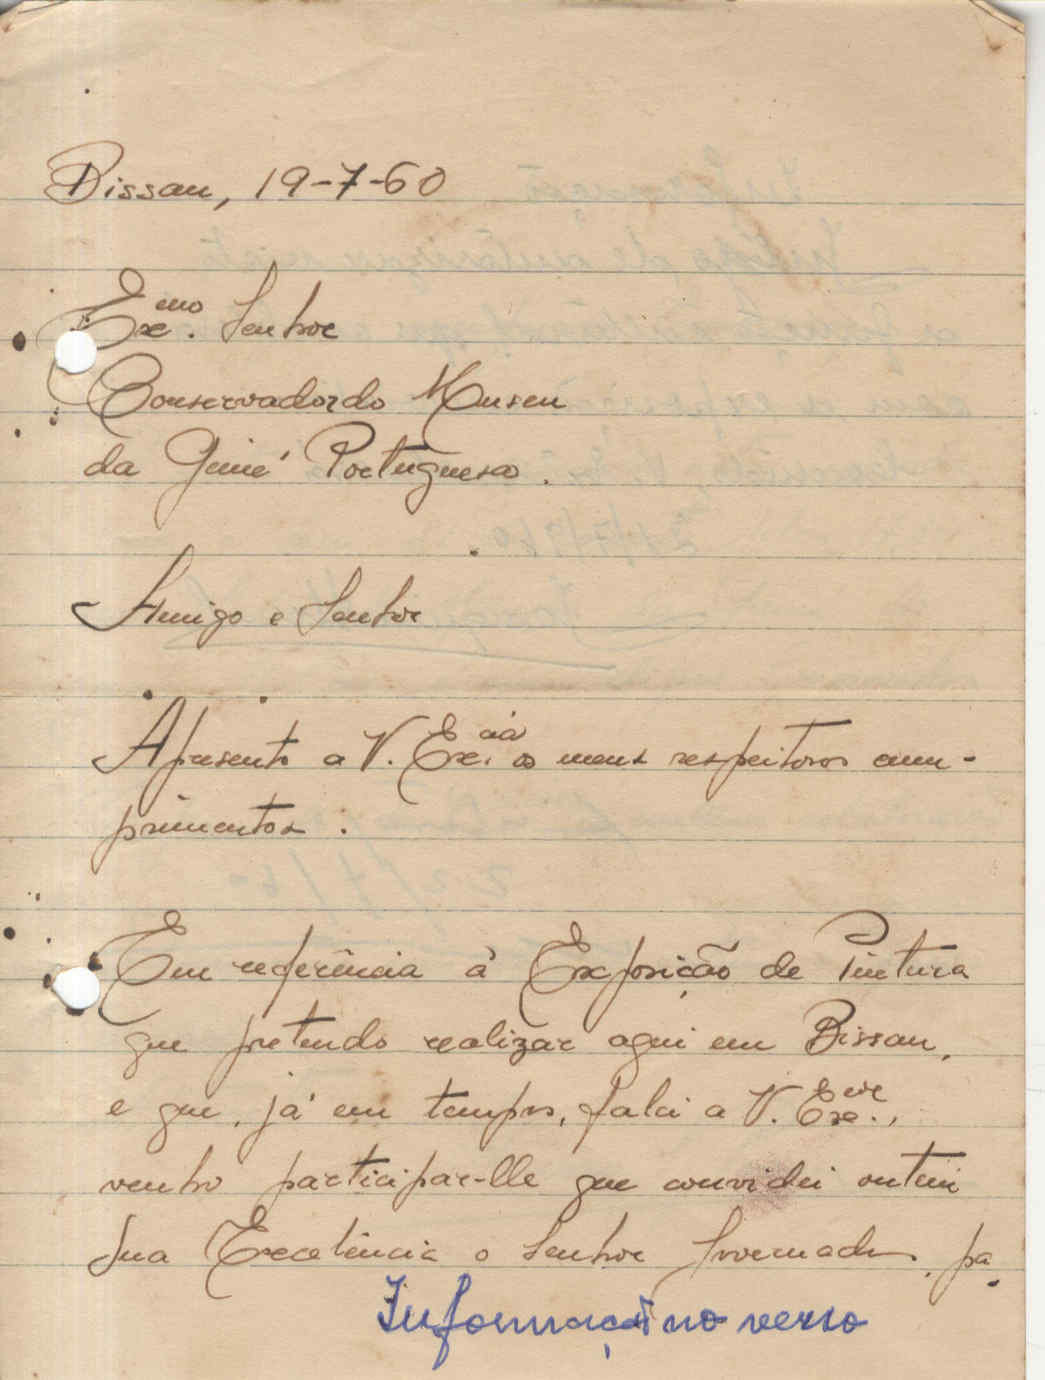 Bissau, 19-7-60
Exmo. Senhor
Conservador do Museu
da Guiné Portuguesa.
Amigo e Senhor
Apresento a V. Excia. os meus respeitosos cum-
primentos.
Em referência à Exposição de Pintura
que pretendo realizar aqui em Bissau,
e que, já em tempos, falei a V. Excia.,
venho participar-lhe que convidei ontem
Sua Excelência o Senhor Governador, pa
Informação no verso